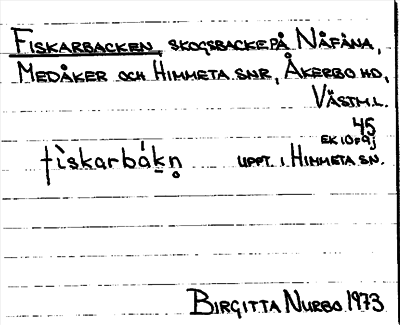 FISKARBACKEN, SKOGSBACKE PÅ NÅFÅNA,
MEDÅKER OCH HIMMETA SNR, ÅKERBO HD,
VÄSTML.
45
EK 10F9j
fìskarbákn̥ UPPT. I HIMMETA SN.
BIRGITTA NURBO 1973